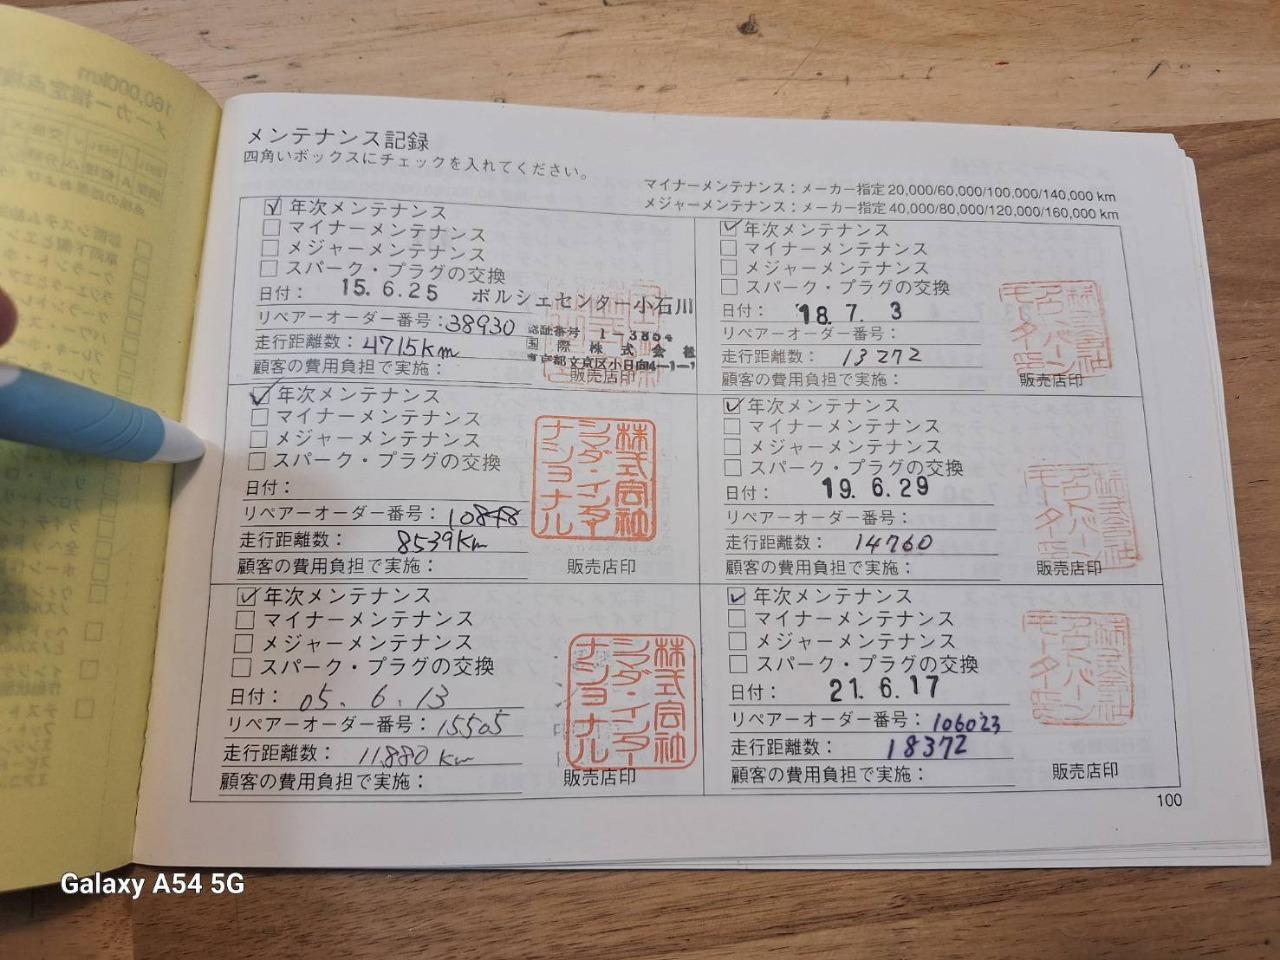 メンテナンス記録
四角いボックスにチェックを入れてください。
マイナーメンテナンス：メーカー指定 20,000/60,000/100,000/140,000 km
メジャーメンテナンス：メーカー指定 40,000/80,000/120,000/160,000 km
年次メンテナンス
マイナーメンテナンス
メジャーメンテナンス
スパーク・プラグの交換
日付： 15. 6. 25 ポルシェセンター小石川
リペアーオーダー番号：38930
認証番号 1-3804
走行距離数： 4715km
国際株式会社
東京都文京区小日向4-1-1
顧客の費用負担で実施：
販売店印
年次メンテナンス
マイナーメンテナンス
メジャーメンテナンス
スパーク・プラグの交換
日付：
リペアーオーダー番号：10848
走行距離数： 8539km
顧客の費用負担で実施：
株式会社
シマダ・インター
ナショナル
販売店印
年次メンテナンス
マイナーメンテナンス
メジャーメンテナンス
スパーク・プラグの交換
日付： 05. 6. 13
リペアーオーダー番号：15505
走行距離数： 11,880 km
顧客の費用負担で実施：
株式会社
シマダ・インター
ナショナル
販売店印
年次メンテナンス
マイナーメンテナンス
メジャーメンテナンス
スパーク・プラグの交換
日付： '18. 7. 3
リペアーオーダー番号：
走行距離数： 13272
顧客の費用負担で実施：
株式会社
アウトバーン
モータース
販売店印
年次メンテナンス
マイナーメンテナンス
メジャーメンテナンス
スパーク・プラグの交換
日付： 19. 6. 29
リペアーオーダー番号：
走行距離数： 14760
顧客の費用負担で実施：
株式会社
アウトバーン
モータース
販売店印
年次メンテナンス
マイナーメンテナンス
メジャーメンテナンス
スパーク・プラグの交換
日付： 21. 6. 17
リペアーオーダー番号：106023
走行距離数： 18372
顧客の費用負担で実施：
株式会社
アウトバーン
モータース
販売店印
100
Galaxy A54 5G